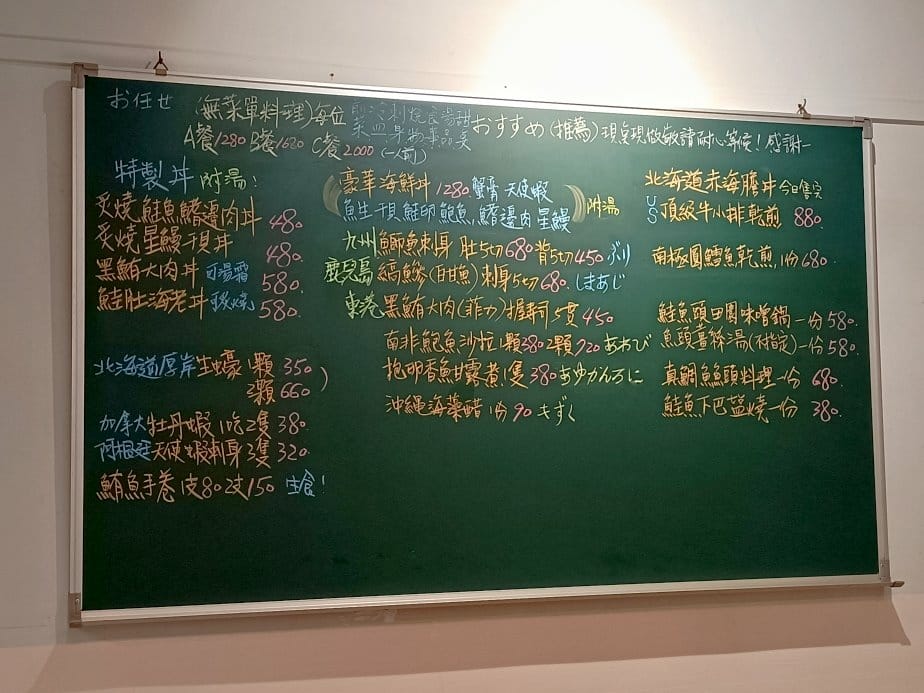 お任せ (無菜單料理)每位 前冷刺燒食湯甜
菜皿身物事品点
A餐1280 B餐1680 C餐2000 (一人前)
おすすめ(推薦)現点現做敬請耐心等候!感謝
特製丼 附湯!
炙燒鮭魚鰭邊肉丼 480.
炙燒星鰻干貝丼 480.
黑鮪大肉丼 可湯霜 580.
鮭肚海老丼 炙燒 580.
北海道厚岸生蠔 1顆 350
2顆 660
加拿大牡丹蝦 1吃2隻 380
阿根廷天使蝦刺身 3隻 320.
鮪魚手卷 1支80 2支150 生食!
豪華海鮮丼 1280. 蟹膏 天使蝦
魚生 干貝 鮭卵 鮑魚 鰭邊肉 星鰻 附湯
九州 鰤魚刺身 肚5切680 背5切450 ぶり
鹿兒島 縞鰺(甘魚)刺身5切 680. しまあじ
東港 黑鮪大肉(菲力)握壽司 5貫 450
南非鮑魚沙拉 1顆380 2顆720 あわび
抱卵香魚甘露煮 1隻 380 あゆかんろに
沖繩海藻醋 1份 90 もずく
北海道赤海膽丼 今日售完
US 頂級牛小排乾煎 880.
南極圓鱈魚乾煎 1份 680.
鮭魚頭田園味噌鍋 一份 580.
一份 580.
真鯛魚頭料理 一份 680.
鮭魚下巴塩燒 一份 380.